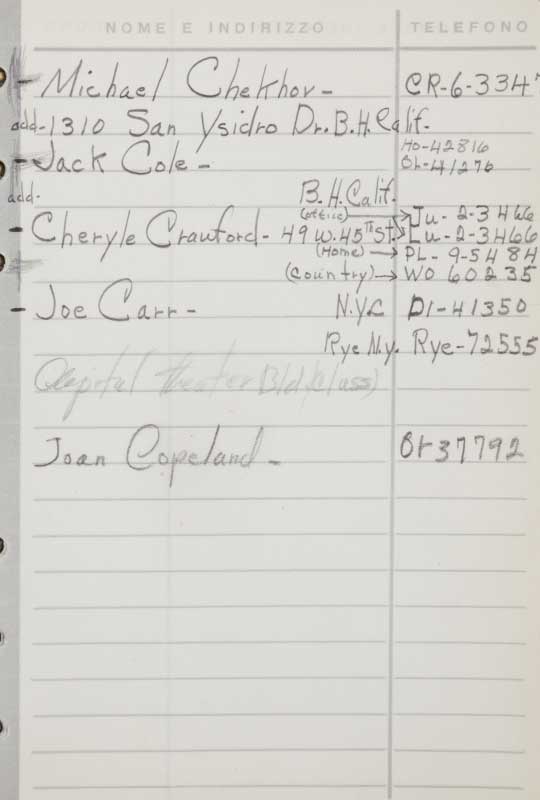 NOME E INDIRIZZO TELEFONO
- Michael Chekhov - CR-6-334
add-1310 San Ysidro Dr. B.H. Calif.
- Jack Cole - Ho-42816
OL-41276
add- B.H. Calif.
(office) → Ju-2-3466
- Cheryle Crawford- 49 W. 45th St. → Lu-2-3466
(Home) → PL-9-5484
(Country) → WO 60235
- Joe Carr - N.y.c DI-41350
Rye N.y. Rye-72555
Capital theater Bld. (class)
Joan Copeland - Or37792